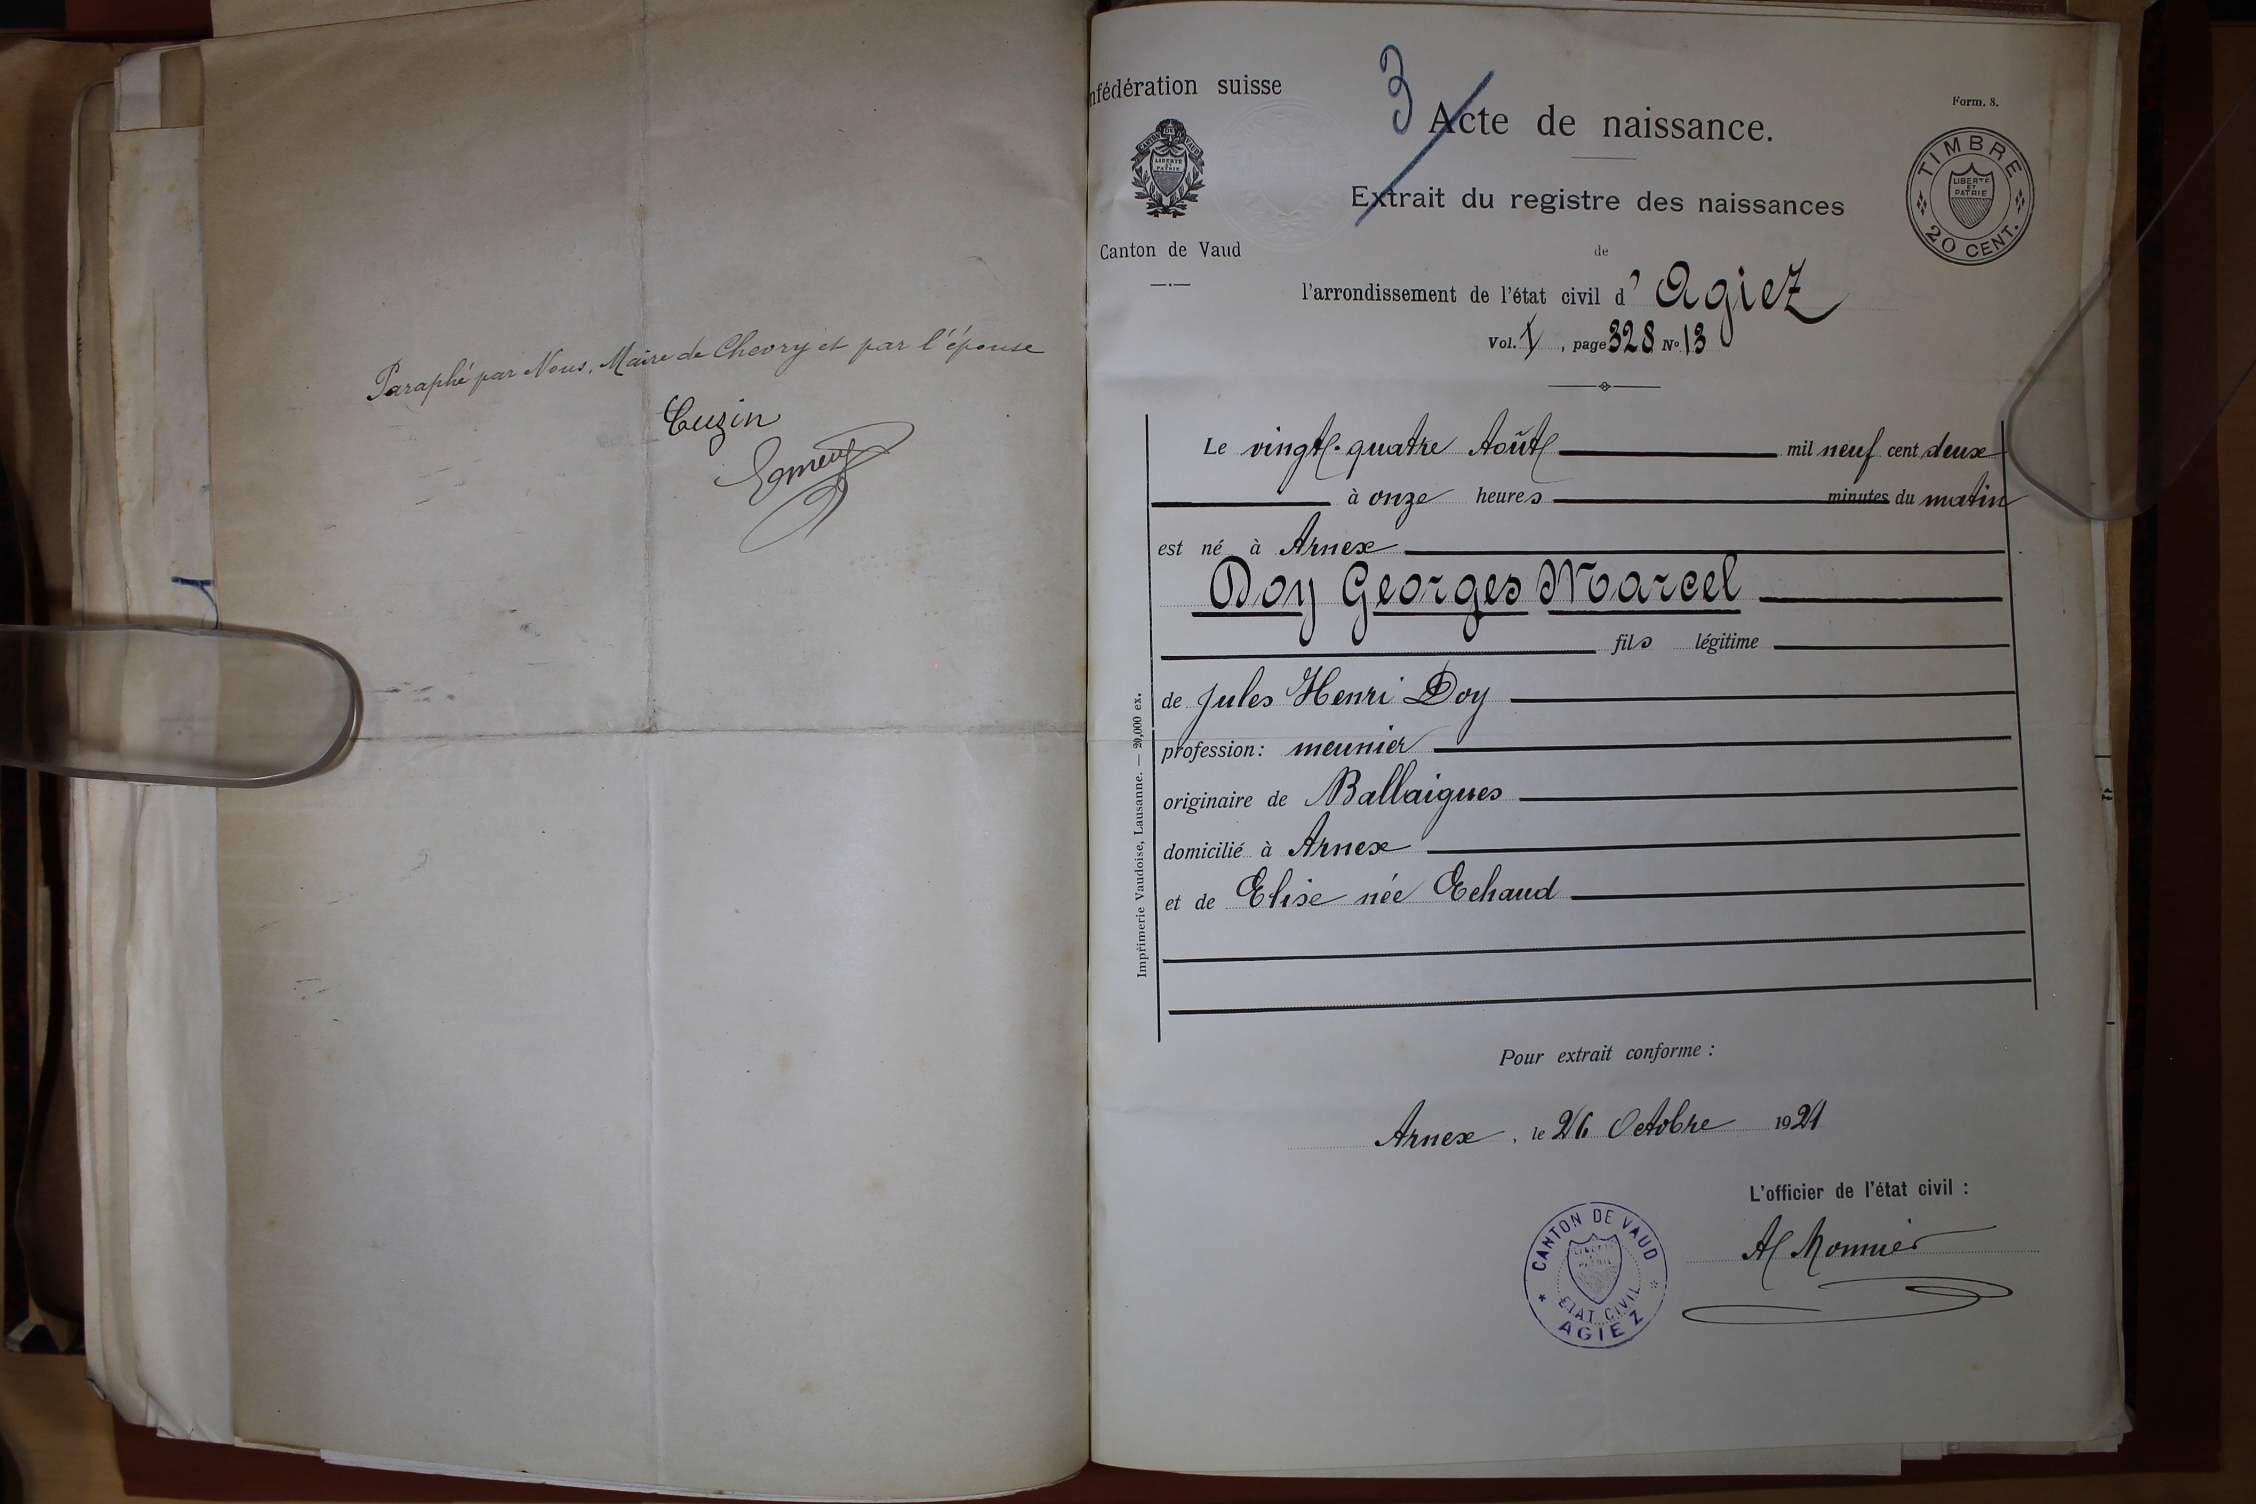 Paraphé par Nous, Maire de Chevry et par l'épouse
Cuzin
1
nfédération suisse
CANTON DE VAUD
LIBERTÉ
ET
PATRIE
Canton de Vaud
3
Form. 8.
Acte de naissance.
Extrait du registre des naissances
de
l'arrondissement de l'état civil d' Agiez
Vol. 1, page 328 No 13
TIMBRE
LIBERTÉ
ET
PATRIE
20 CENT.
Le vingt-quatre Août mil neuf cent deux
à onze heures minutes du matin
est né à Arnex
Doy Georges Marcel
fils légitime
de Jules Henri Doy
profession: meunier
originaire de Ballaigues
domicilié à Arnex
et de Elise née Echaud
Imprimerie Vaudoise, Lausanne. — 20,000 ex.
Pour extrait conforme :
Arnex, le 26 Octobre 1921
L'officier de l'état civil :
Al Monnier
CANTON DE VAUD
ETAT CIVIL
AGIEZ